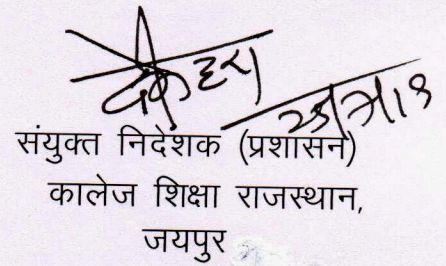 संयुक्त निदेशक (प्रशासन)
कालेज शिक्षा राजस्थान,
जयपुर